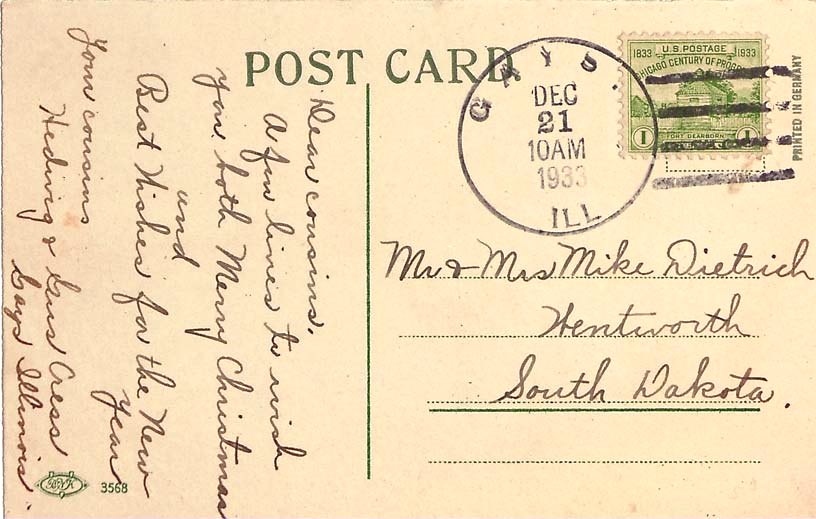 POST CARD
GAYS.
DEC
21
10AM
1933
ILL
1833 U.S. POSTAGE 1933
CHICAGO CENTURY OF PROGRESS
FORT DEARBORN
1 1
PRINTED IN GERMANY
Dear cousins.
A few lines to wish
you both Merry Christmas
and
Best Wishes for the New
Year
Your cousins
Hedwig & Gus Cress
Gays Illinois.
Mr & Mrs Mike Dietrich
Wentworth
South Dakota.
3568